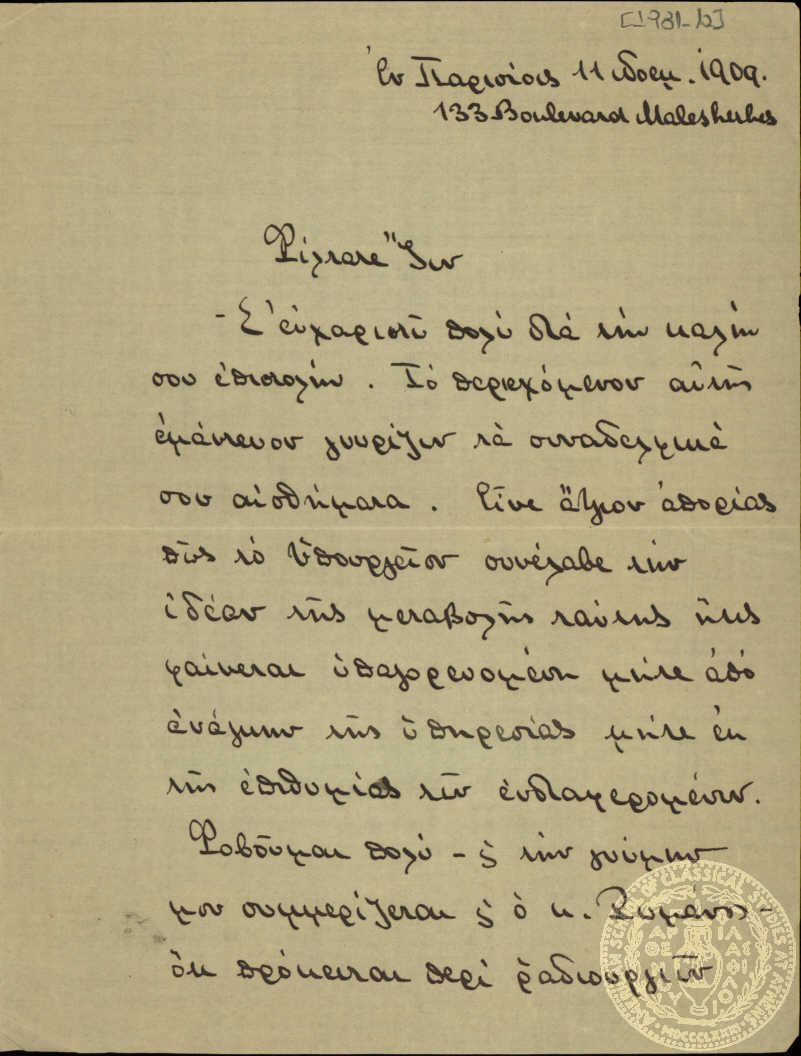 [1981-b]
Ἐν Παρισίοις 11 Νοεμ. 1909.
133 Boulevard Malesherbes
Φίλτατε Ἴων
- Σ' εὐχαριστῶ πολὺ διὰ τὴν καλήν
σου ἐπιστολήν. Τὸ περιεχόμενον αὐτῆς
ἐμάντευον γνωρίζων τὰ συναδελφικά
σου αἰσθήματα. Εἶνε ἄξιον ἀπορίας
πῶς τὸ Ὑπουργεῖον συνέλαβε τὴν
ἰδέαν τῆς μεταβολῆς ταύτης ἥτις
φαίνεται ὑπαγορευομένη μήτε ἀπό
ἀνάγκην τῆς ὑπηρεσίας μήτε ἐκ
τῆς ἐπιθυμίας τῶν ἐνδιαφερομένων.
Φοβοῦμαι πολύ - ϛ τὴν γνώμην
μου συμμερίζεται ϛ ὁ κ. Ῥωμάνος -
ὅτι πρόκειται περὶ ῥᾳδιουργιῶν
AMERICAN SCHOOL OF CLASSICAL STUDIES AT ATHENS
MDCCCLXXXI